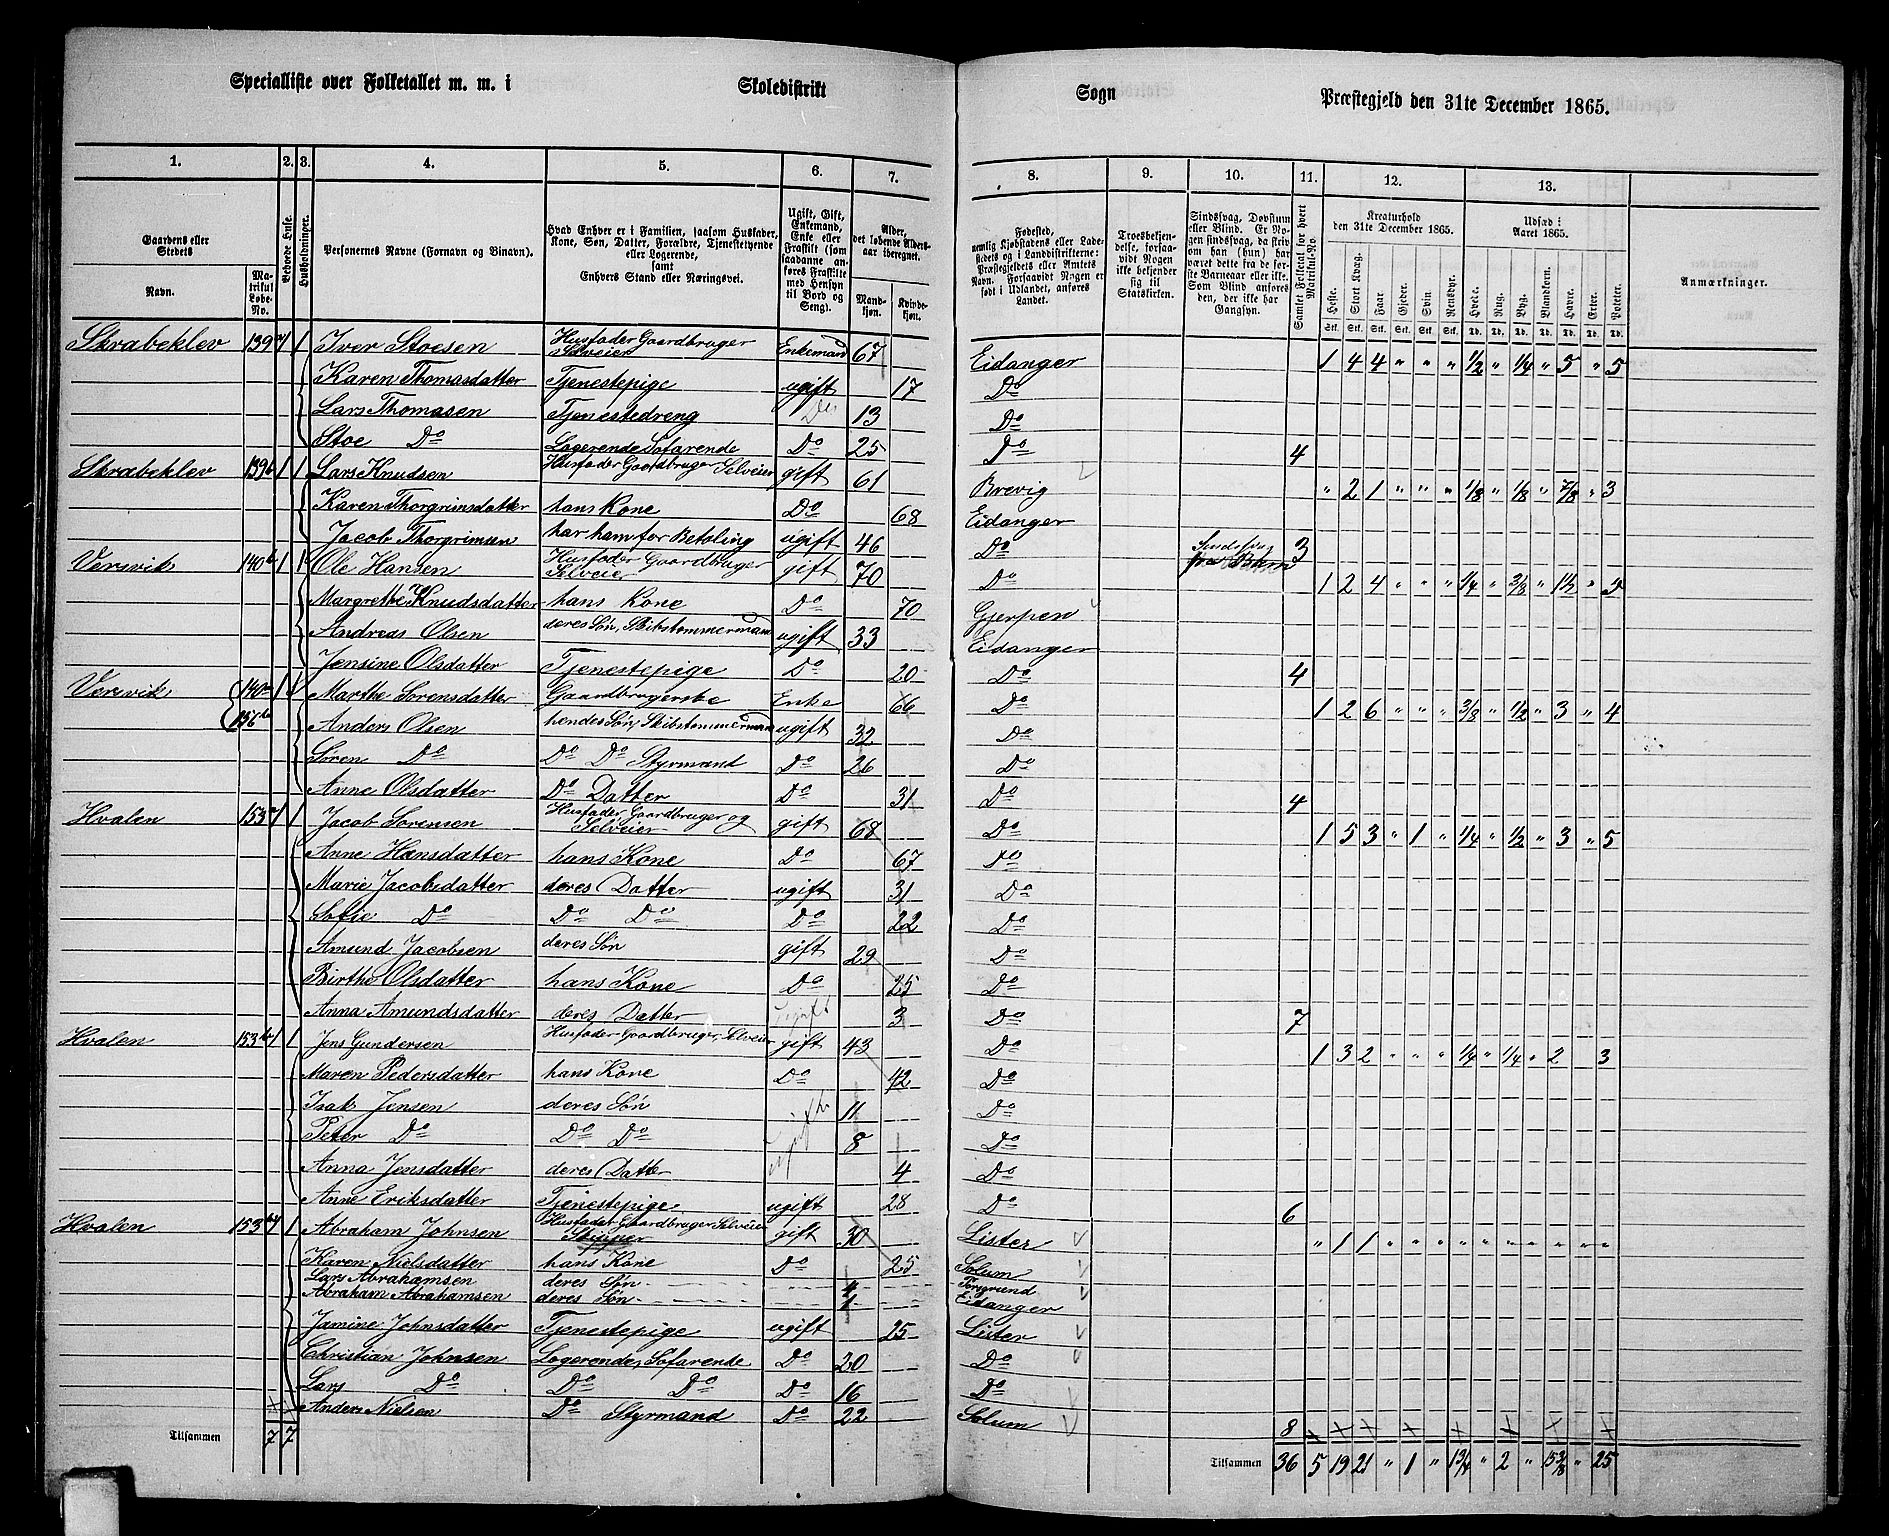 Specialliste over Folketallet m. m. i Skoledistrikt Sogn Præstegjeld den 31te December 1865.
1. 2. 3. 4. 5. 6. 7. 8. 9. 10. 11. 12. 13.
Gaardens eller Stedets Navn. Matrikul Løbe-No. Beboede Huse. Husholdninger. Personernes Navne (Fornavn og Binavn).
Hvad Enhver er i Familien, saasom Husfader, Kone, Søn, Datter, Forældre, Tjenestetyende eller Logerende, samt Enhvers Stand eller Næringsvei.
Ugift, Gift, Enkemand, Enke eller Fraskilt (som saadanne anføres Fraskilte med Hensyn til Bord og Seng).
Alder, det løbende Alders-aar iberegnet. Mandkjøn. Kvindekjøn.
Fødested, nemlig Kjøbstadens eller Ladestedets og i Landdistrikterne: Præstegjeldets eller Amtets Navn. Forsaavidt Nogen er født i Udlandet, anføres Landet.
Troesbekjendelse, forsaavidt Nogen ikke bekjender sig til Statskirken.
Sindssvag, Døvstum eller Blind. Er Nogen sindssvag, da skriv om han (hun) har været dette fra de første Barneaar eller ikke. Som Blind anføres den, der ikke har Gangsyn.
Samlet Folketal for hvert Matrikul-No.
Kreaturhold den 31te December 1865. Heste. Stort Kvæg. Faar. Gjeder. Svin. Rensdyr.
Udsæd i Aaret 1865. Hvede. Rug. Byg. Blandkorn. Havre. Erter. Poteter.
Anmærkninger.
Skrabeklev 139a 1 1 Iver Stoesen Husfader Gaardbruger Selveier Enkemand 67 Eidanger 1 4 4 " " " 1/2 " 1/4 " 5 " 5
Karen Thomasdatter Tjenestepige ugift 17 Do
Lars Thomasen Tjenestedreng Do 13 Do
Stoe Do Logerende Søfarende Do 25 Do 4
Skrabeklev 139b 1 1 Lars Knudsen Husfader Gaardbruger Selveier gift 61 Brevig " 2 1 " " " 1/8 " 1/8 " 7/8 " 3
Karen Thorgrimsdatter hans Kone Do 68 Eidanger
Jacob Thorgrimsen har ham for Betaling ugift 46 Do Sindssvag fra Barn 3
Versvik 140b 1 1 Ole Hansen Husfader Gaardbruger Selveier gift 70 Do 1 2 4 " " " 1/4 " 3/8 " 1 1/2 "
Margrethe Knudsdatter hans Kone Do 70 Gjerpen
Andreas Olsen deres Søn, Skibstømmermand ugift 33 Eidanger
Jensine Olsdatter Tjenestepige Do 20 Do 4
Versvik 140a 156b 1 Marthe Sørensdatter Gaardbrugerske Enke 66 Do 1 2 6 " " " 3/8 " 1/2 " 3 " 4
Anders Olsen hendes Søn, Skibstømmermand ugift 32 Do
Søren Do Do Do Styrmand Do 26 Do
Anne Olsdatter Do Datter Do 31 Do 4
Hvalen 153a 1 1 Jacob Sørensen Husfader Gaardbruger og Selveier gift 68 Do 1 5 3 " 1 " 1/4 " 1/2 " 3 " 5
Anne Hansdatter hans Kone Do 67 Do
Marie Jacobsdatter deres Datter ugift 31 Do
Sofie Do Do Do Do 22 Do
Amund Jacobsen deres Søn gift 29 Do
Birthe Olsdatter hans Kone Do 25 Do
Anna Amundsdatter deres Datter ugift 3 Do 7
Hvalen 153b 1 1 Jens Gundersen Husfader Gaardbruger, Selveier gift 43 Do 1 3 2 " " " 1/4 " 1/4 " 2 3
Maren Pedersdatter hans Kone Do 42 Do
Isak Jensen deres Søn ugift 11 Do
Peter Do Do Do 8 Do
Anna Jensdatter deres Datter 4 Do
Anne Eriksdatter Tjenestepige ugift 28 Do 6
Hvalen 153 1 1 Abraham Johnsen Husfader Gaardbruger, Selveier Skipper gift 30 Lister " 1 1 " " " " " " " " " "
Karen Nielsdatter hans Kone Do 25 Solum
Lars Abrahamsen deres Søn 4 Porsgrund
Abraham Abrahamsen deres Søn 1 Eidanger
Jamine Johnsdatter Tjenestepige ugift 25 Lister
Christian Johnsen Logerende, Søfarende Do 20 Do
Lars Do Do Do Do 16 Do
Anders Nielsen Do Styrmand Do 22 Solum 8
Tilsammen 7 7 Tilsammen 36 5 19 21 " 1 " 1 3/4 " 2 " 15 3/8 " 25